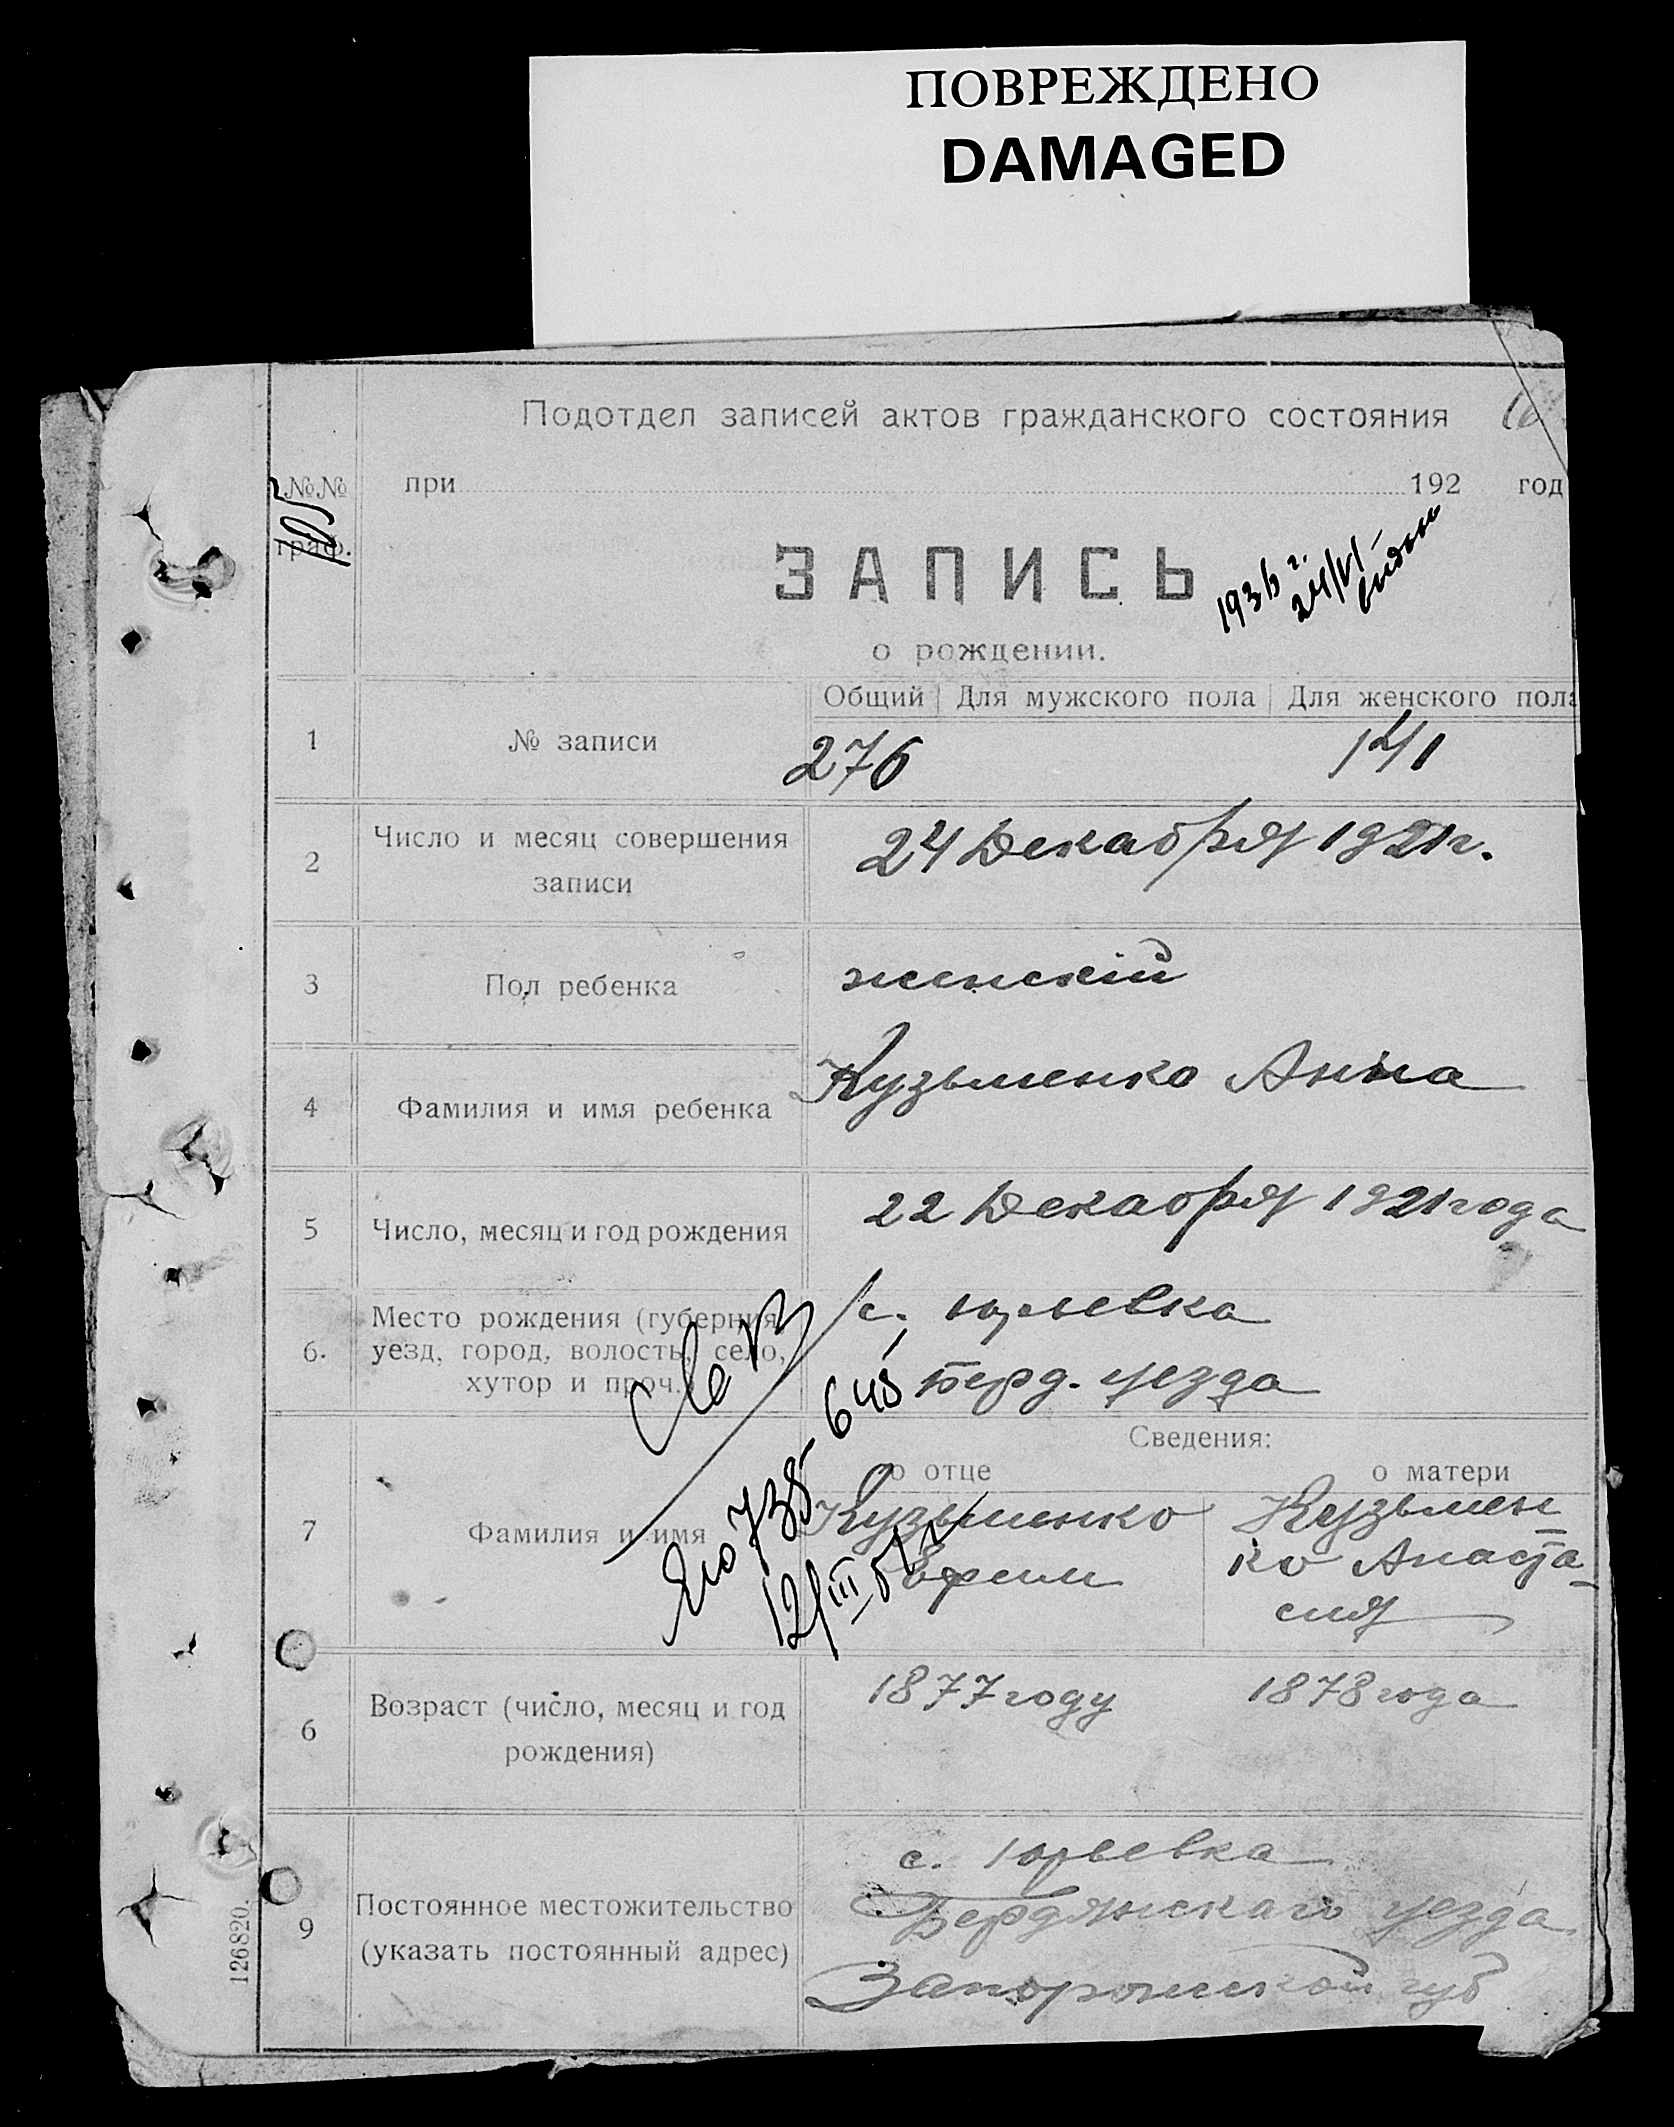 ПОВРЕЖДЕНО
DAMAGED
Подотдел записей актов гражданского состояния
№№ граф.
при 192 год
105
ЗАПИСЬ
1936 г.
24/VI-
о рождении.
Общий Для мужского пола Для женского пола
1 № записи 276 141
2 Число и месяц совершения
записи
24 Декабря 1921 г.
3 Пол ребенка женскій
4 Фамилия и имя ребенка Кузьменко Анна
5 Число, месяц и год рождения 22 Декабря 1921 года
6. Место рождения (губерния,
уезд, город, волость, село,
хутор и проч.)
с. Юрьевка
Берд. уезда
Сведения:
о отце о матери
7 Фамилия и имя
Кузьменко
Ефим
Кузьмен
ко Анаста-
сия
735 645
12/III 51
6 Возраст (число, месяц и год
рождения)
1877 году 1878 года
9 Постоянное местожительство
(указать постоянный адрес)
с. Юрьевка
Бердянскаго уезда
Запорожской губ
126820.